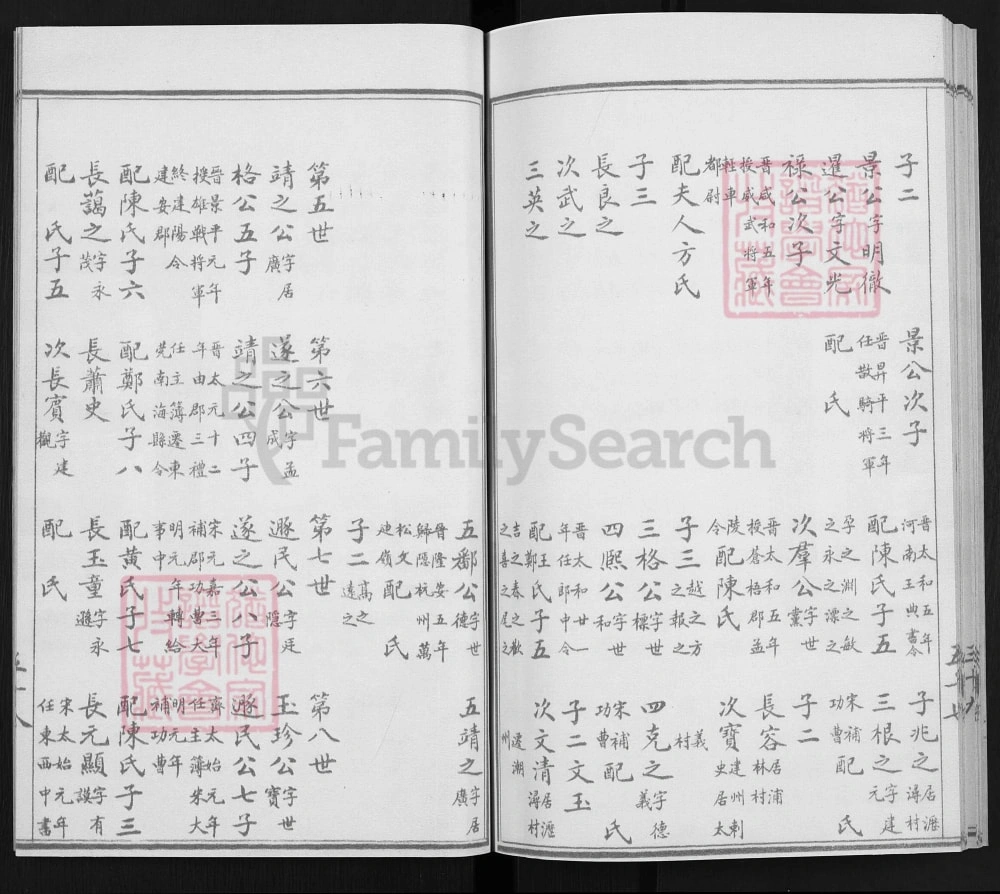 子二
景公字明徹
暹公字文光
祿公次子
晉咸和五年
授威武將軍
輕車
都尉
配夫人方氏
子三
長良之
次武之
三英之
景公次子
晉昇平三年
任散騎將軍
配 氏
晉太和五年
河南王典書令
配陳氏子五
孕之淵之敏
之永之漂之
次羣公字世
黨
晉太和五年
授蒼梧郡孟
陵
令配陳氏
子三越之方
之報之
三格公字世
標
四熙公字世
和
晉太和一
年任郎中令
配王氏子五
鄭
吉之春之歡
之喜之尾之
五鄱公字世
德
晉隆安五年
歸隱杭州萬
松文
建嶺配 氏
子二高之
遠之
子兆之居瀝
潯村
三根之字建
元
宋補
功曹配 氏
子二
長容居浦
林村
次寶建州刺
史居太
義
村
四克之字德
義
宋補
功曹配 氏
子二文玉
次文清居瀝
潯村
遷潮
州
五靖之字居
廣
第五世
靖之公字居
廣
格公五子
晉景平元年
授雄戰將軍
終建陽令
建安郡
配陳氏子六
長藹之字永
茂
配 氏子五
第六世
遂之公字孟
成
靖之公四子
晉太元十二
年由郡三禮
任主簿遷東
莞南海縣令
配鄭氏子八
長蕭史
次長賓字建
觀
第七世
遯民公字廷
隱
遂之公八子
宋元嘉三年
補郡功曹大
明元年轉給
事中
配黃氏子七
長玉童字永
遜
配 氏
第八世
玉珍公字世
寶
遯民公七子
齊太始元年
任主簿宋大
明元年
補功曹
配陳氏子三
長元顯字有
謨
宋太始元年
任東西中書
FamilySearch